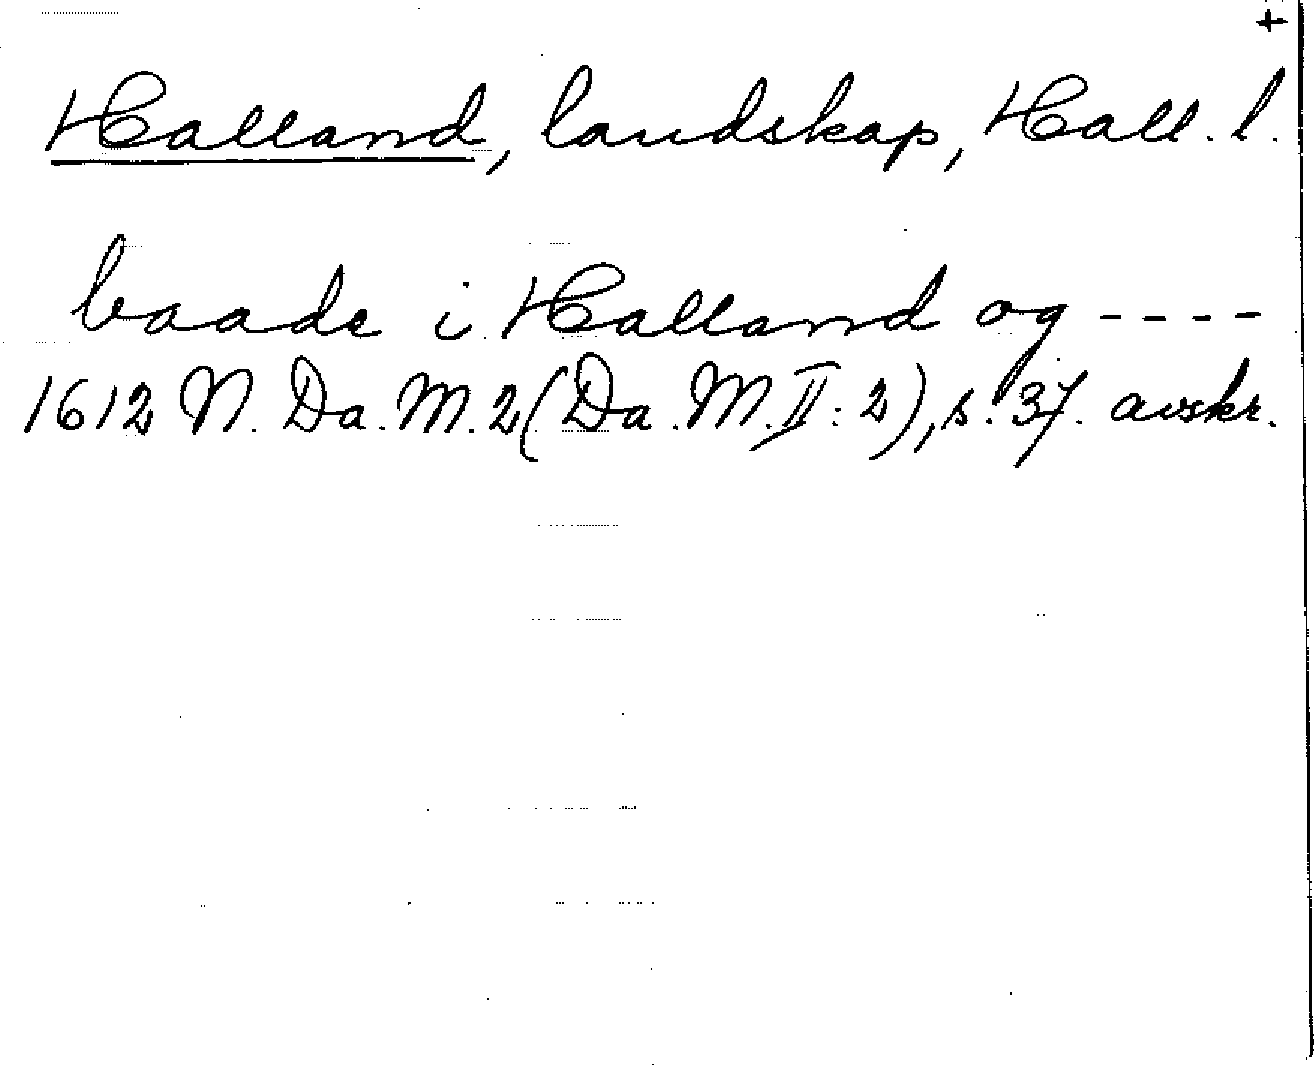 +
Halland, landskap, Hall. l.
baade i Halland og ----
1612 N. Da. M. 2 (Da. M. II: 2), s. 37. avskr.